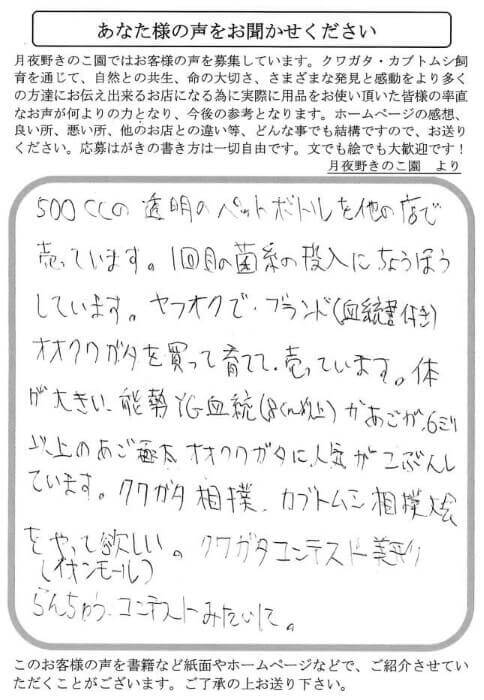 あなた様の声をお聞かせください
月夜野きのこ園ではお客様の声を募集しています。クワガタ・カブトムシ飼
育を通じて、自然との共生、命の大切さ、さまざまな発見と感動をより多く
の方達にお伝え出来るお店になる為に実際に用品をお使い頂いた皆様の率直
なお声が何よりの力となり、今後の参考となります。ホームページの感想、
良い所、悪い所、他のお店との違い等、どんな事でも結構ですので、お送り
ください。応募はがきの書き方は一切自由です。文でも絵でも大歓迎です！
月夜野きのこ園　より
500CCの透明のペットボトルを他の店で
売っています。1回目の菌糸の投入にちょうほう
しています。ヤフオクで、ブランド(血統書付き)
オオクワガタを買って育てて、売っています。体
が大きい、能勢YG血統(8cm以上)かあごが、6ミリ
以上のあご極太オオクワガタに、人気が二ぶんし
ています。クワガタ相撲、カブトムシ相撲大会
をやって欲しい。クワガタコンテスト美形
(イオンモール)
らんちゅう、コンテストみたいに。
このお客様の声を書籍など紙面やホームページなどで、ご紹介させてい
ただくことがございます。ご了承の上お送り下さい。